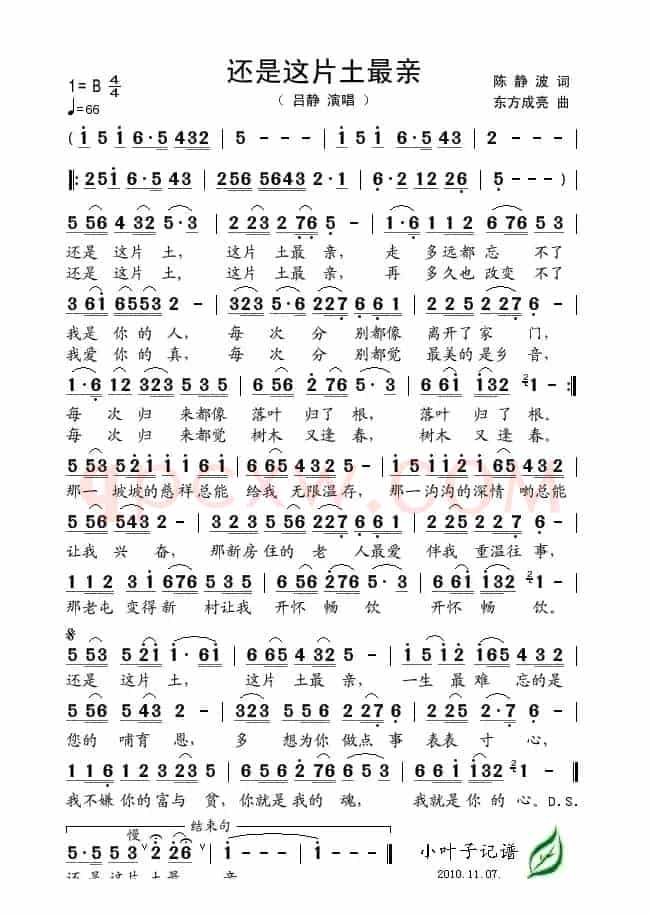 还是这片土最亲
1=B 4/4
♩=66
( 吕静 演唱 )
陈静波 词
东方成亮 曲
( 1 5 1 6·5 432 | 5 - - - | 1 5 1 6·5 432 | 2 - - - |
‖: 251 6·5 43 | 256 5643 2·1 | 6·2 12 26 | 5 - - - )
5 56 4 32 5·3 | 2 23 2 76 5 - | 1·6 1 12 6 76 5 3
还是 这片 土, 这片 土最 亲, 走 多远都 忘 不了
还是 这片 土, 这片 土最 亲, 再 多久也 改变 不了
3 61 6553 5 - | 323 5·6 227 6 61 | 225 2 227 6 -
我是 你的人, 每次 分 别都像 离开了家 门,
我爱 你的真, 每次 分 别都觉 最美的是乡 音,
1·6 12 323 5 35 | 6 56 2 76 5 - | 6 61 132 1 - :‖
每 次 归 来都像 落叶 归了 根, 落叶 归了 根。
每 次 归 来都觉 树木 又逢 春, 树木 又逢 春。
5 53 521 1 161 | 6 65 4 32 5 - | 1 51 121 165 61
那一 坡坡的慈祥总能 给我 无限温存, 那一沟沟的深情 哟总能
5 56 543 2 - | 323 535 227 661 | 2 25 227 6 -
让我 兴奋, 那新房住的老 人最爱 伴我 重温往事,
1 12 31 676 535 | 6 56 276 5 - | 6 61 132 1 -
那老屯 变得新 村让我 开怀 畅 饮 开怀 畅 饮。
5 53 521 1·61 | 6 65 4 32 5 - | 151 121 165 61
还是 这片 土, 这片 土最 亲, 一生 最难 忘的是
5 56 543 2 - | 323 535 2 276 | 225 2·7 6 -
您的 哺育 恩, 多 想为你 做点 事 表表 寸 心,
1 16 12 323 5 | 656 276 653 5 | 661 132 1 - ‖
我不嫌 你的 富与 贫, 你就是 我的 魂, 我就是 你 的 心。D.S.
结束句
慢
5·5 53 2·26 | 1 - - - | 1 - - - ‖
还 是 这片 土 最 亲
小叶子记谱
2010.11.07.